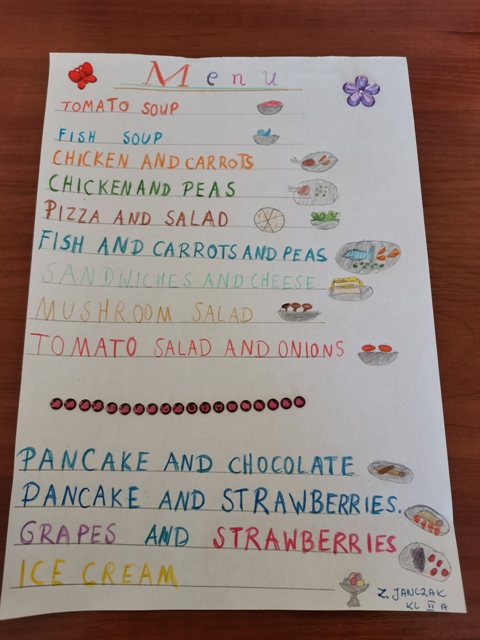 Menu
TOMATO SOUP
FISH SOUP
CHICKEN AND CARROTS
CHICKEN AND PEAS
PIZZA AND SALAD
FISH AND CARROTS AND PEAS
SANDWICHES AND CHEESE
MUSHROOM SALAD
TOMATO SALAD AND ONIONS
PANCAKE AND CHOCOLATE
PANCAKE AND STRAWBERRIES.
GRAPES AND STRAWBERRIES
ICE CREAM
Z. JANCZAK
KL II A